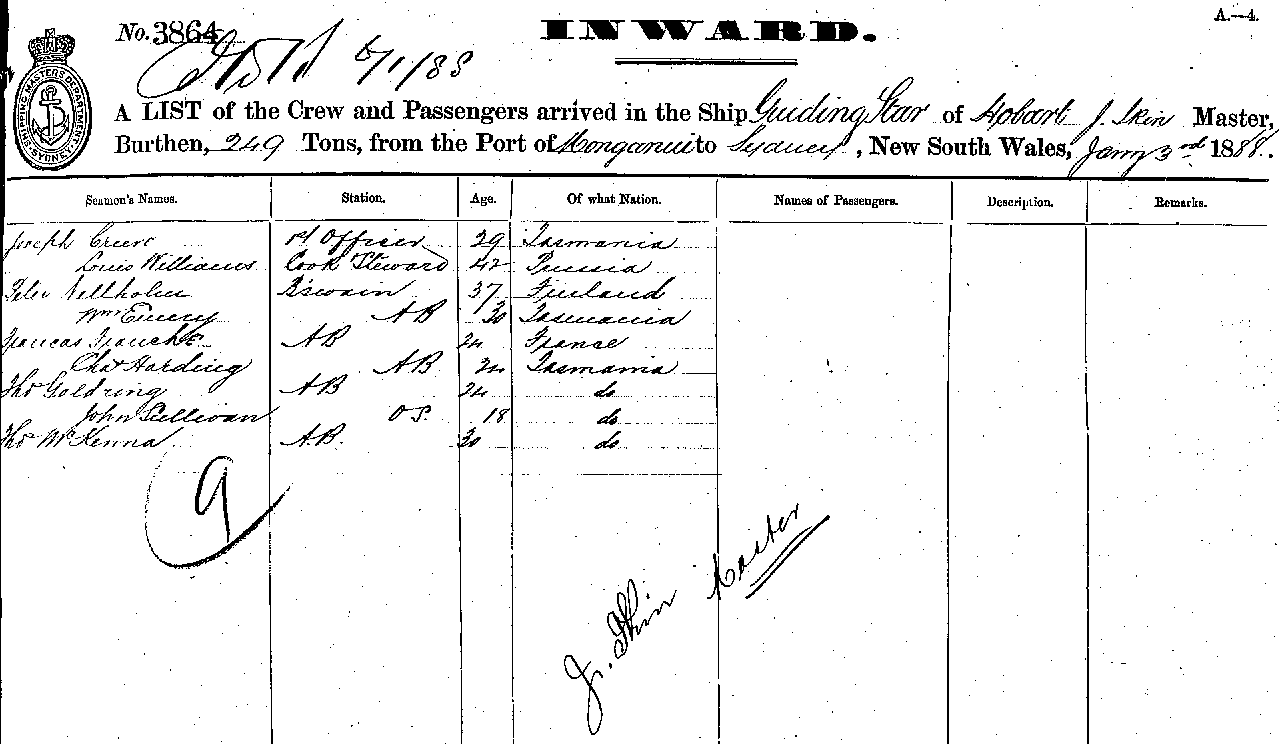 A.—4.
No. 3864
INWARD.
6/1/88
SHIPPING MASTERS DEPARTMENT SYDNEY
A LIST of the Crew and Passengers arrived in the Ship Guiding Star of Hobart J. Skin Master,
Burthen, 249 Tons, from the Port of Monganui to Sydney, New South Wales, Jany 3rd 1888.
Seamen's Names. Station. Age. Of what Nation. Names of Passengers. Description. Remarks.
Joseph 1st Officer 29 Tasmania
Louis Williams Cook Steward 42 Prussia
Peter B'swain 37 Finland
Wm Emery AB 30 Tasmania
AB 24 France
Chas Harding AB 24 Tasmania
Thos Goldring AB 24 do
John Sullivan OS. 18 do
Thos McKenna AB. 30 do
9
J. Skin Master